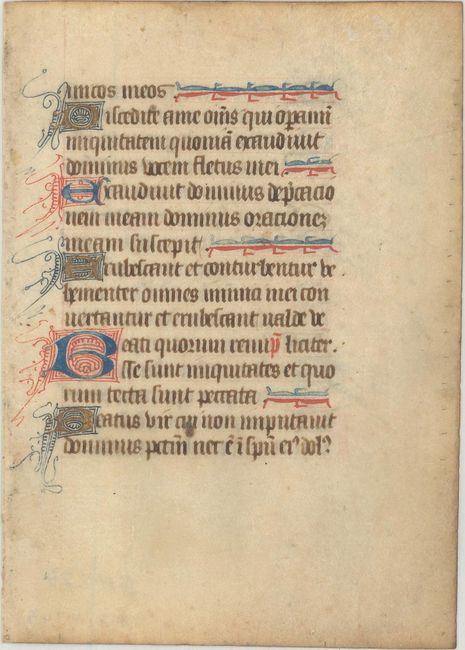 imicos meos
Discedite a me om̄s qui op̄amī
iniquitatem quoniā exaudivit
dominus vocem fletus mei
Exaudivit dominus dep̄cacio
nem meam dominus oracionez
meam suscepit
Erubescant et conturbentur ve
hementer omnes inimici mei con
vertantur et erubescant valde ve
Beati quorum remi p̄s lociter.
sse sunt iniquitates et quo
rum tecta sunt peccata
Beatus vir cui non imputavit
dominus pctm̄ nec ē ī spū eiꝰ dolꝰ